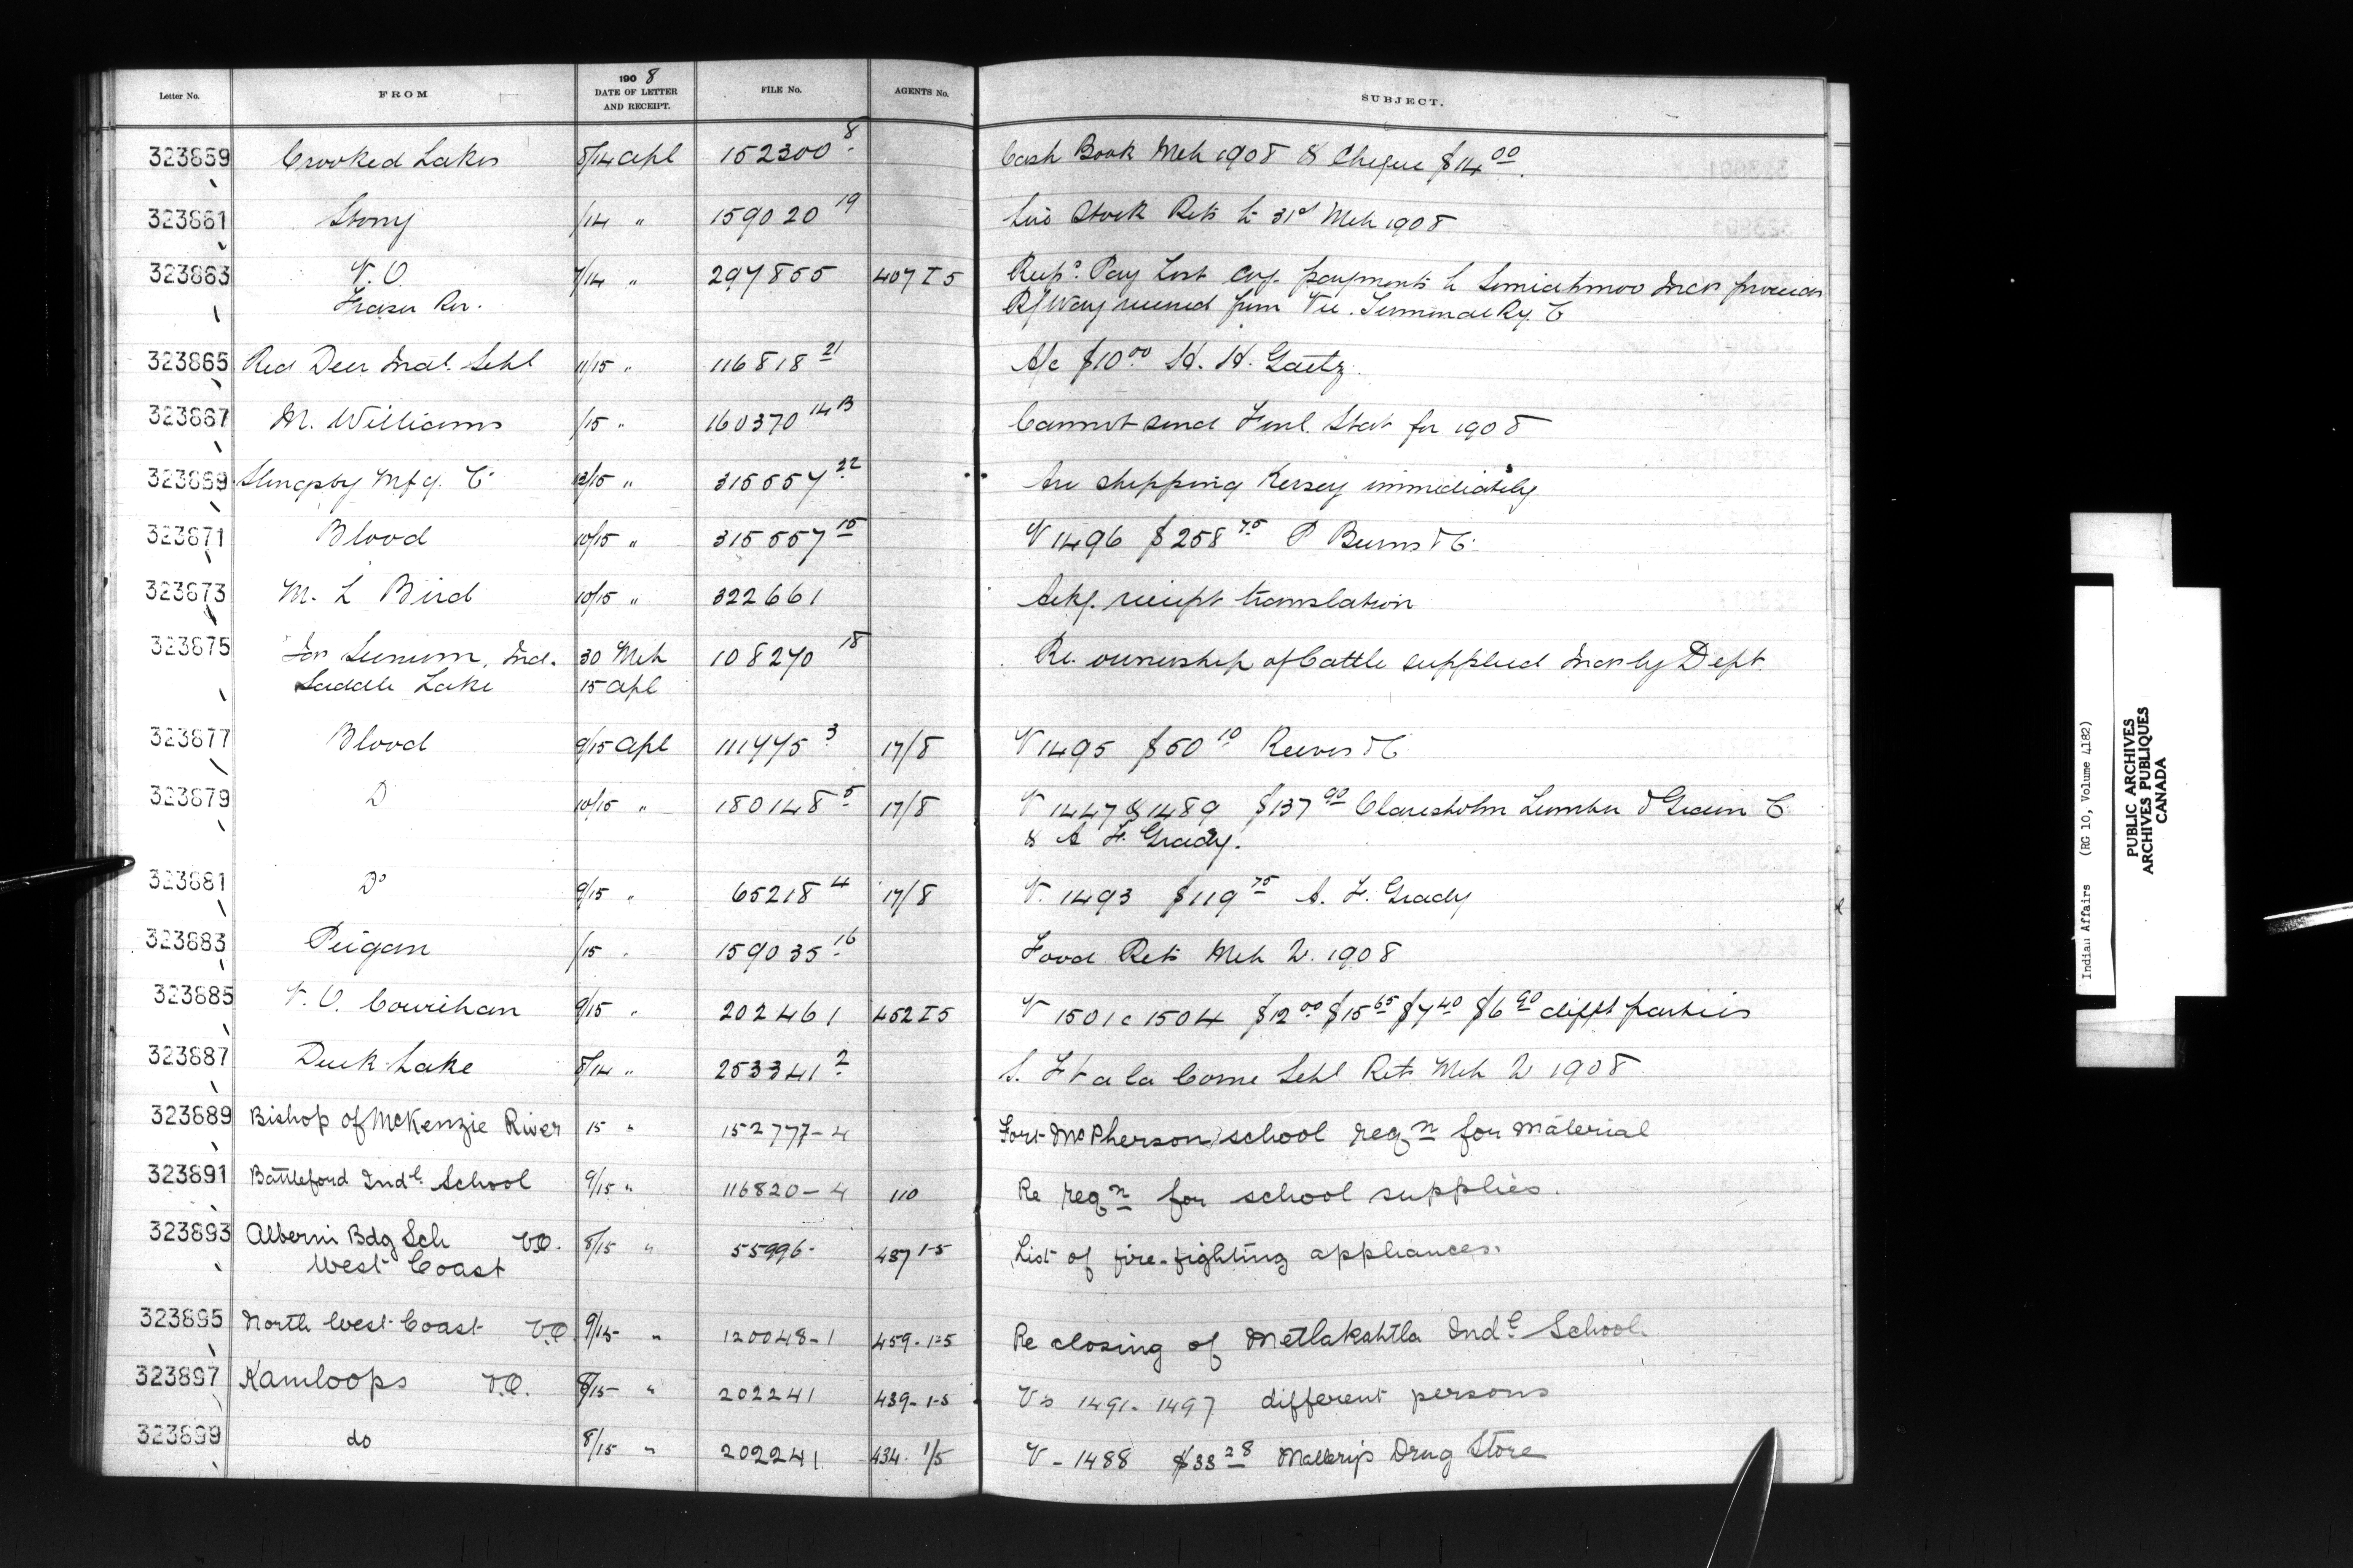 Letter No. FROM 1908 DATE OF LETTER AND RECEIPT. FILE No. AGENTS No. SUBJECT.
323859 Crooked Lakes 8/14 Apl 152300 8 Cash Book Mch 1908 & Cheque $14 00
323861 Stony /14 " 159020 19 Live Stock Rets to 31st Mch 1908
323863 V.O. 7/14 " 297855 407 I 5 Pay List payments to Semiahmoo Inds
Fraser Riv. R/Way from Vic. Terminal Ry. Co
323865 Red Deer Indl. Schl 11/15 " 116818 21 A/c $10 00 H. H. Gaetz
323867 M. Williams /15 " 160370 14 B Cannot send Finl. Stat for 1908
323869 Slingsby Mfg. Co 13/15 " 315557 22 Are shipping Kersey immediately
323871 Blood 10/15 " 315557 15 V 1496 $258 75 P Burns & Co
323873 M. L Bird 10/15 " 322661 Ackg. receipt translation
323875 Ind. 30 Mch 108270 18 Re. ownership of Cattle supplied Inds by Dept.
Saddle Lake 15 Apl
323877 Blood 9/15 Apl 111775 3 17/8 V 1495 $50 10 Reeves & Co
323879 Do 10/15 " 180148 5 17/8 V 1447 & 1489 $137 90 Claresholm Lumber & Grain Co
& A F. Grady.
323881 Do 9/15 " 65218 4 17/8 V. 1493 $119 75 A. F. Grady
323883 Peigan /15 " 159035 16 Food Rets Mch Q. 1908
323885 V. O. Cowichan 9/15 " 202461 452 I 5 V 1501 c 1504 $12 00 $15 65 $7 40 $6 90 difft parties
323887 Duck Lake 8/14 " 253341 2 Ft a la Corne Schl Rets Mch Q 1908
323889 Bishop of McKenzie River 15 " 152777-4 Fort McPherson school reqn for material
323891 Battleford Indl. School 9/15 " 116820-4 110 Re reqn for school supplies.
323893 Alberni Bdg Sch V.O. 8/15 " 55996- 437 1-5 List of fire-fighting appliances.
West Coast
323895 North West Coast V.O. 9/15 " 120048-1 459-1-5 Re closing of Metlakahtla Indl School.
323897 Kamloops V.O. 8/15 " 202241 439-1-5 Vs 1491-1497 different persons
323899 do 8/15 " 202241 434. 1/5 V-1488 $33 28 Drug Store
Indian Affairs (RG 10, Volume 4182)
PUBLIC ARCHIVES
ARCHIVES PUBLIQUES
CANADA